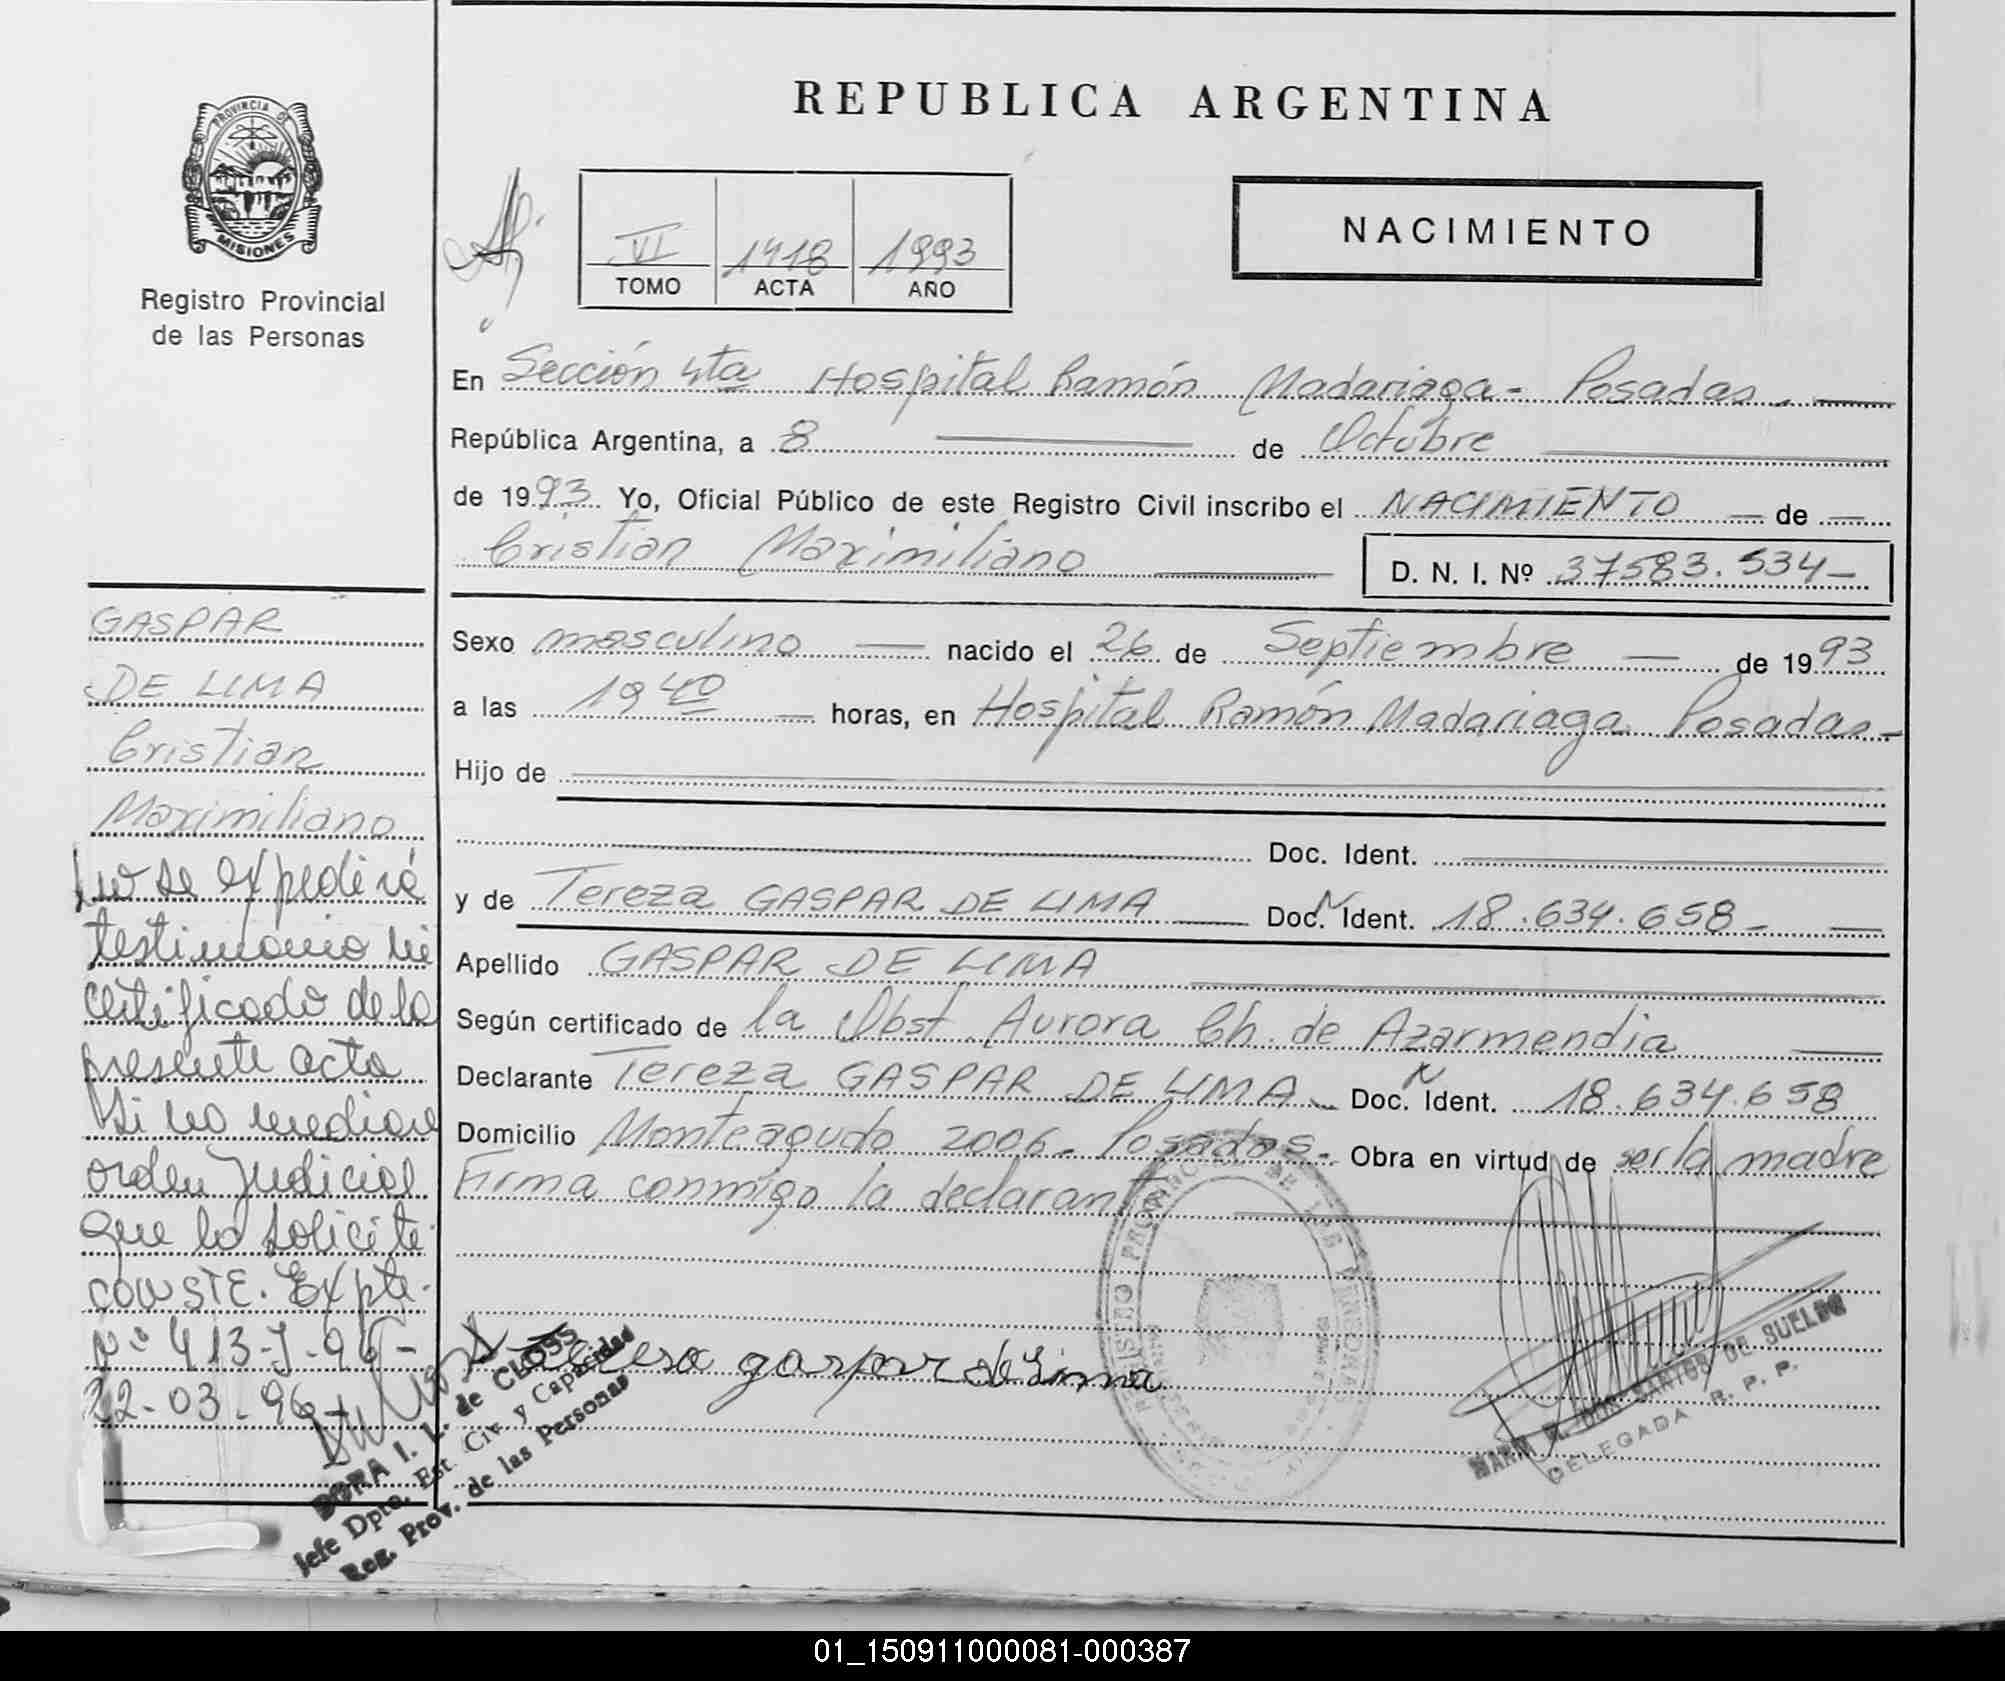 PROVINCIA DE
MISIONES
Registro Provincial
de las Personas
REPUBLICA ARGENTINA
NACIMIENTO
VI 1418 1993
TOMO ACTA AÑO
En Sección 4ta Hospital Ramón Madariaga - Posadas. —
República Argentina, a 8 — de Octubre —
de 1993. Yo, Oficial Público de este Registro Civil inscribo el NACIMIENTO — de —
Cristian Maximiliano —
D. N. I. Nº 37583.534 -
Sexo masculino — nacido el 26 de Septiembre — de 1993
a las 19 40 — horas, en Hospital Ramón Madariaga Posadas -
Hijo de —
Doc. Ident. —
y de Tereza GASPAR DE LIMA — Doc. N Ident. 18.634.658 - —
Apellido GASPAR DE LIMA —
Según certificado de la Obst. Aurora Ch. de Azarmendia —
Declarante Tereza GASPAR DE LIMA - Doc. N Ident. 18.634.658
Domicilio Monteagudo 2006 - Posadas - Obra en virtud de ser la madre
Firma conmigo la declarante —
Tereza gaspar de Lima
MARIA DOS SANTOS DE SUELDO
DELEGADA R. P. P.
GASPAR
DE LIMA
Cristian
Maximiliano
No se expedirá
testimonio ni
certificado de la
presente acta
si no mediare
orden Judicial
que lo solicite
CONSTE. Expte.
Nº 413-J-96 -
22-03-96 -
DORA I. L. de CLOSS
Jefe Dpto. Est. Civ. y Capacidad
Reg. Prov. de las Personas
01_150911000081-000387